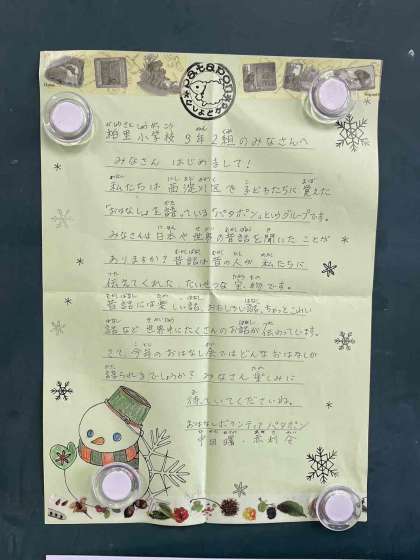 patapon
柏里小学校 3年2組のみなさんへ
みなさん はじめまして!
私たちは 西淀川区で 子どもたちに 覚えた
「おはなし」を語っている「パタポン」というグループです。
みなさんは日本や世界の昔話を聞いたことが
ありますか? 昔話は昔の人が 私たちに
伝えてくれた たいせつな 宝物です。
昔話には楽しい話、おもしろい話、ちょっとこわい
話など 世界中にたくさんのお話が伝わっています。
さて、今年のおはなし会ではどんなおはなしが
語られるでしょうか? みなさん 楽しみに
待っていてくださいね。
おはなしボランティア パタポン